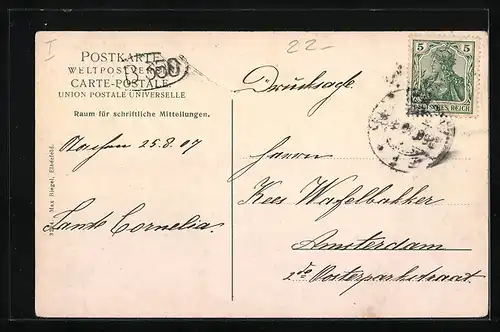 I
22-
POSTKARTE
WELTPOSTVEREIN
CARTE-POSTALE
UNION POSTALE UNIVERSELLE
Raum für schriftliche Mitteilungen.
Aachen 25.8.07
Tante Cornelia.
Max Biegel, Elberfeld.
5 5
DEUTSCHES REICH
Drucksache
Herrn
Kees Wafelbakker
Amsterdam
2de Oosterparkstraat.